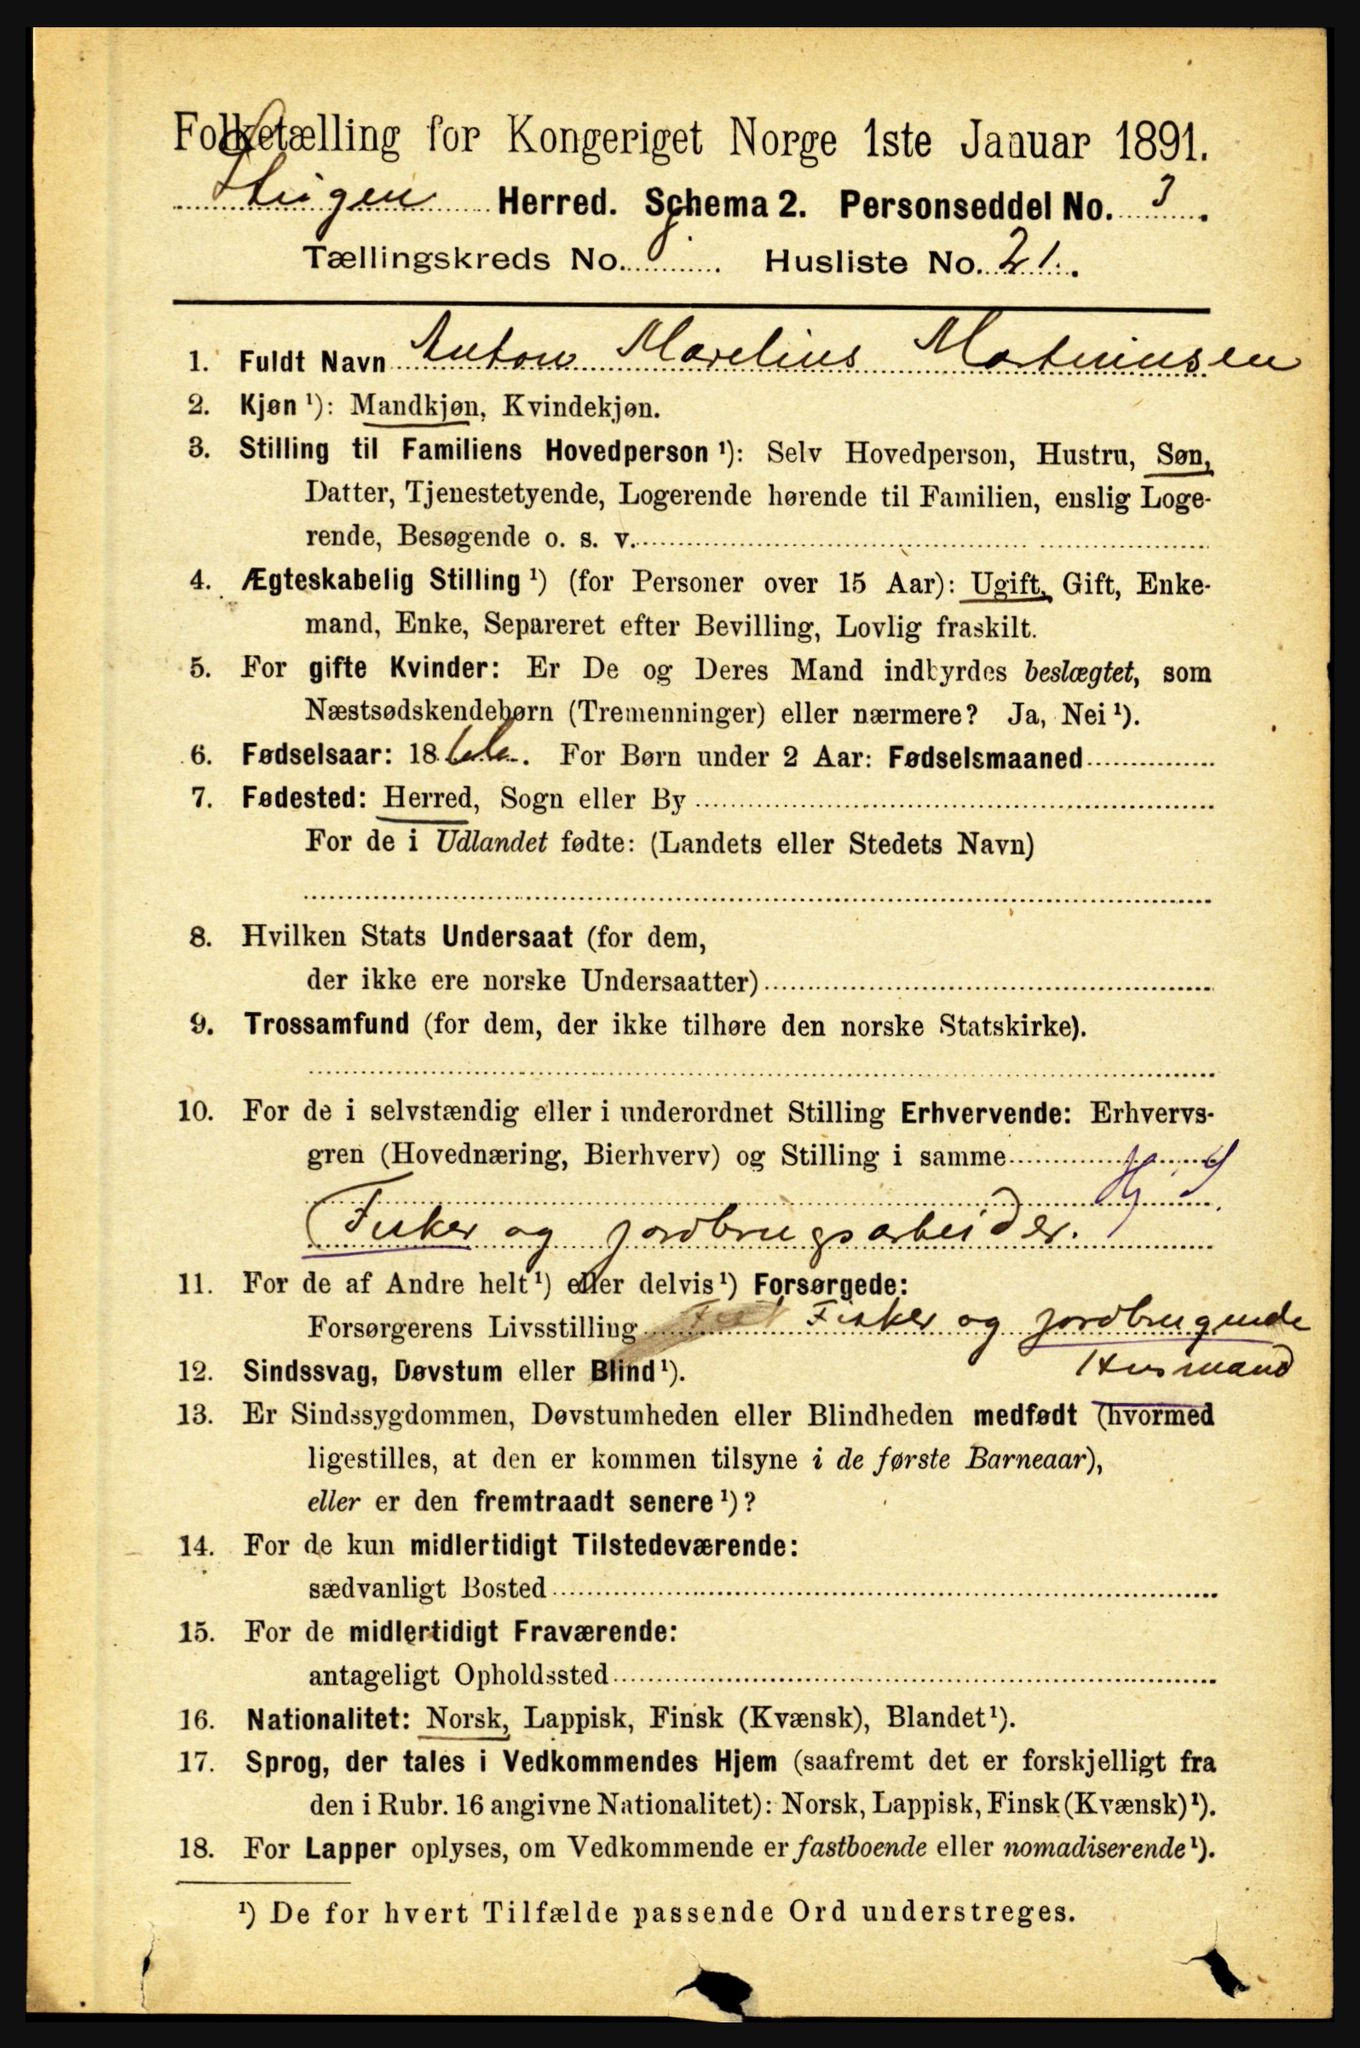 Folketælling for Kongeriget Norge 1ste Januar 1891.
Steigen Herred. Schema 2. Personseddel No. 3.
Tællingskreds No. Husliste No. 21.
1. Fuldt Navn Anton Marelius Martinusen
2. Kjøn ¹): Mandkjøn, Kvindekjøn.
3. Stilling til Familiens Hovedperson ¹): Selv Hovedperson, Hustru, Søn,
Datter, Tjenestetyende, Logerende hørende til Familien, enslig Loge-
rende, Besøgende o. s. v.
4. Ægteskabelig Stilling ¹) (for Personer over 15 Aar): Ugift, Gift, Enke-
mand, Enke, Separeret efter Bevilling, Lovlig fraskilt.
5. For gifte Kvinder: Er De og Deres Mand indbyrdes beslægtet, som
Næstsødskendebørn (Tremenninger) eller nærmere? Ja, Nei ¹).
6. Fødselsaar: 1866. For Børn under 2 Aar: Fødselsmaaned
7. Fødested: Herred, Sogn eller By
For de i Udlandet fødte: (Landets eller Stedets Navn)
8. Hvilken Stats Undersaat (for dem,
der ikke ere norske Undersaatter)
9. Trossamfund (for dem, der ikke tilhøre den norske Statskirke).
10. For de i selvstændig eller i underordnet Stilling Erhvervende: Erhvervs-
gren (Hovednæring, Bierhverv) og Stilling i samme
Fisker og jordbrugsarbeider.
11. For de af Andre helt ¹) eller delvis ¹) Forsørgede:
Forsørgerens Livsstilling Fisker og jordbrugende
Husmand
12. Sindssvag, Døvstum eller Blind ¹).
13. Er Sindssygdommen, Døvstumheden eller Blindheden medfødt (hvormed
ligestilles, at den er kommen tilsyne i de første Barneaar),
eller er den fremtraadt senere ¹)?
14. For de kun midlertidigt Tilstedeværende:
sædvanligt Bosted
15. For de midlertidigt Fraværende:
antageligt Opholdssted
16. Nationalitet: Norsk, Lappisk, Finsk (Kvænsk), Blandet ¹).
17. Sprog, der tales i Vedkommendes Hjem (saafremt det er forskjelligt fra
den i Rubr. 16 angivne Nationalitet): Norsk, Lappisk, Finsk (Kvænsk) ¹).
18. For Lapper oplyses, om Vedkommende er fastboende eller nomadiserende ¹).
¹) De for hvert Tilfælde passende Ord understreges.